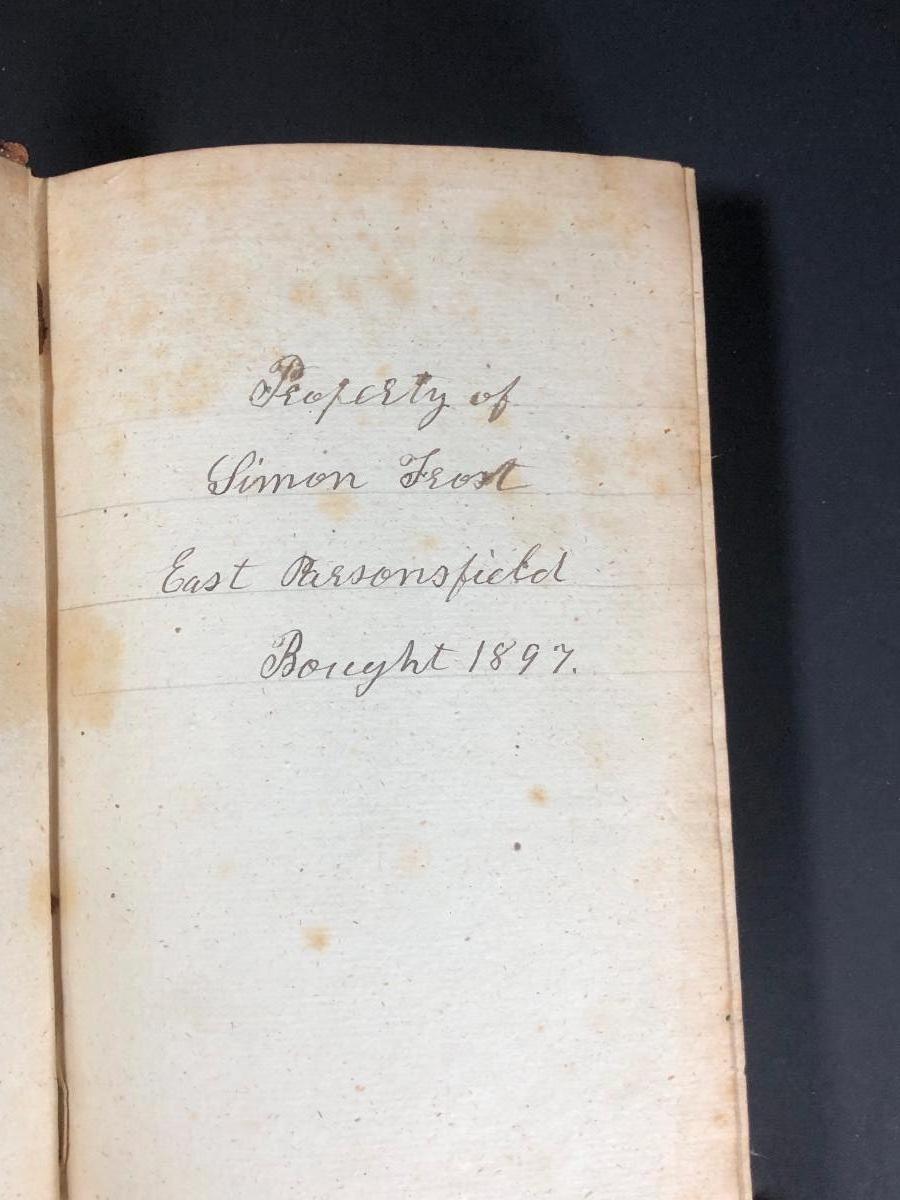 Property of
Simon Frost
East Parsonsfield
Bought 1897.